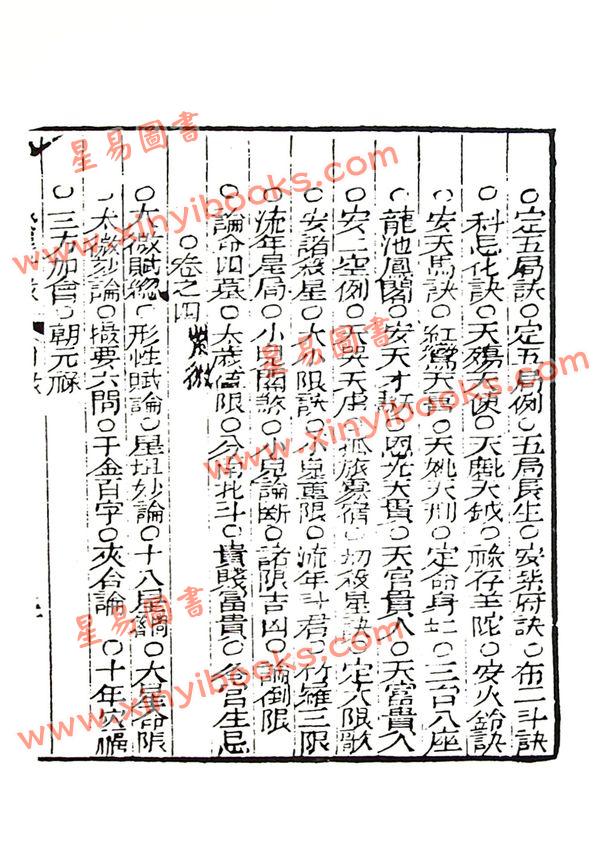 ○定五局訣○定五局例○五局長生○安紫府訣○布二斗訣
○科忌化訣○天殤天使○天魁天鉞○祿存羊陀○安火鈴訣
○安天馬訣○紅鸞天喜○天姚天刑○定命身主○三台八座
○龍池鳳閣○安天才壽○恩光天貴○天官貴人○天富貴人
○安二空例○天哭天虛○孤辰寡宿○劫殺星訣○定大限歌
○安諸殺星○大限訣○小兒童限○流年斗君○竹羅三限
○流年星局○小兒關煞○小兒論斷○諸限吉凶○論倒限
○論命四墓○太歲值限○分南北斗○貴賤富貴○各宮生忌
○卷之四 紫微
○太微賦總○形性賦論○星垣妙論○十八星綱○大星命限
○太微妙論○撮要六問○千金百字○夾合論○十年
○三方加會○朝元祿
星易圖書
www.xinyibooks.com
星易圖書
www.xinyibooks.com
星易圖書
www.xinyibooks.com